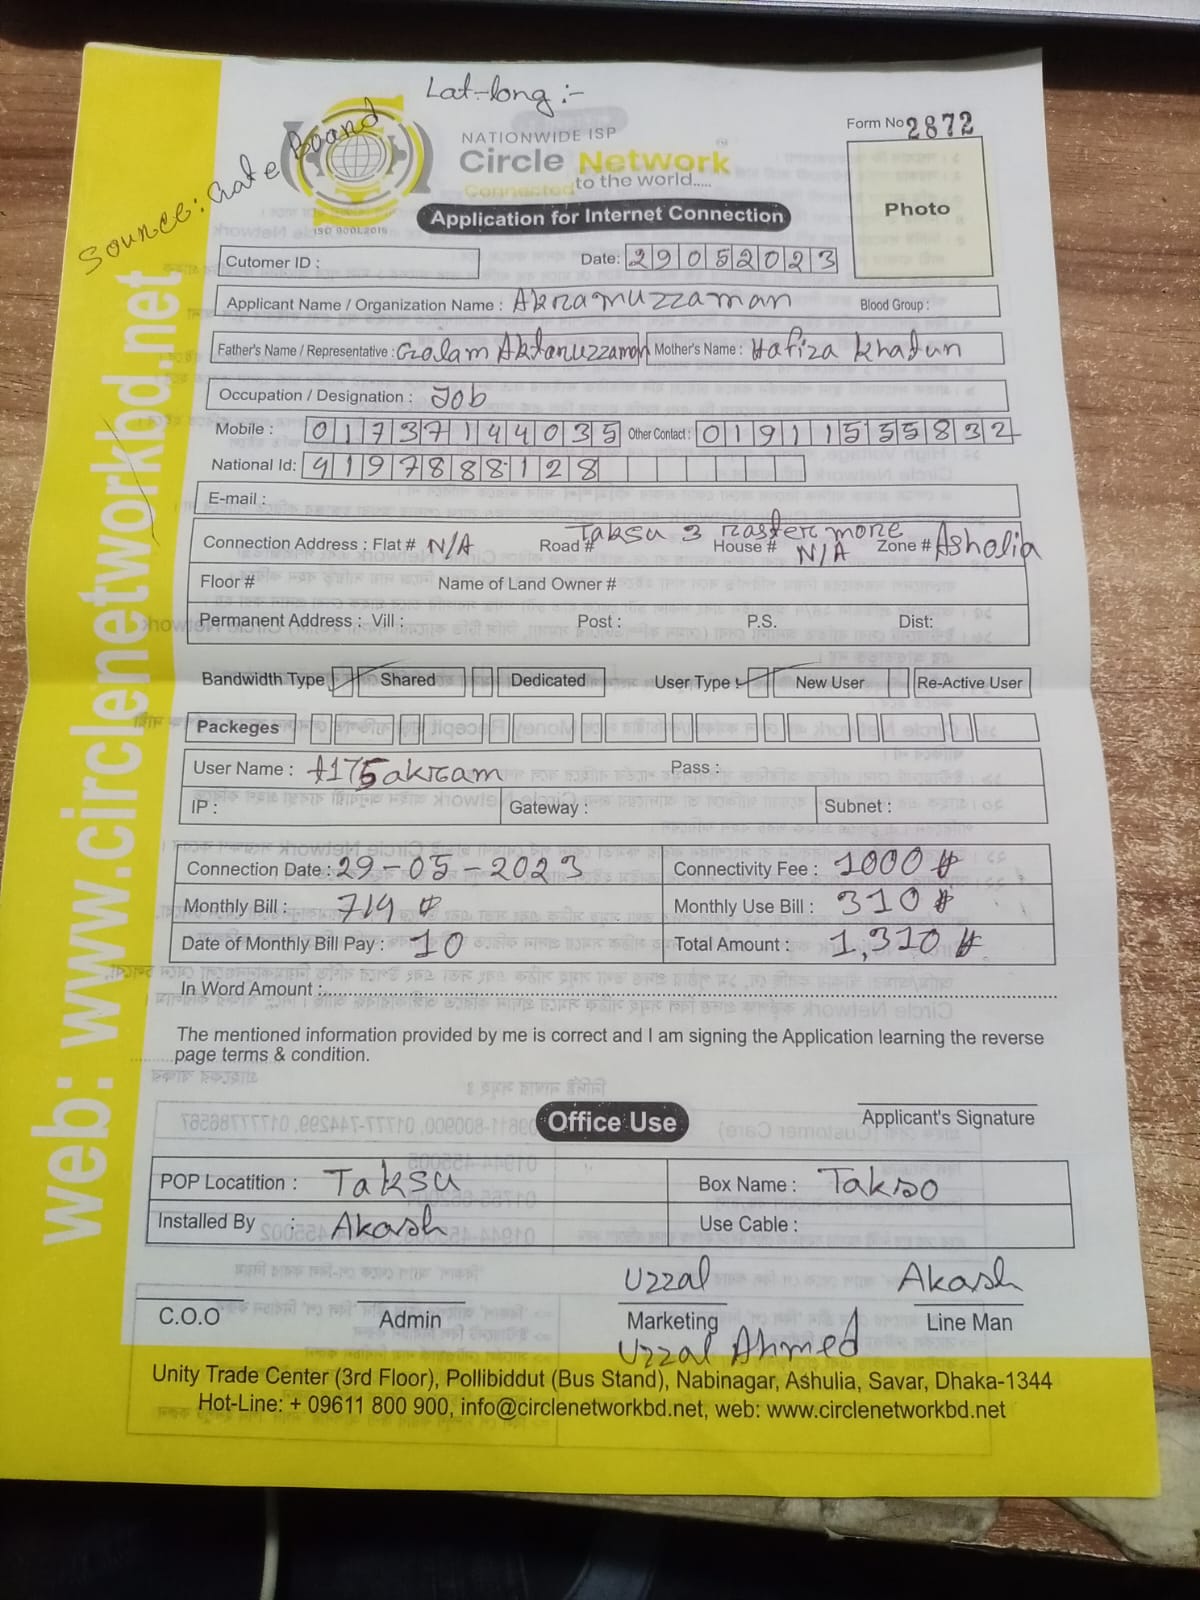 Lat-long :-
Source: Gate Board
NATIONWIDE ISP
Circle Network™
Connected to the world.....
ISO 9001:2015
Form No 2872
Photo
Application for Internet Connection
Cutomer ID : Date: 29052023
Applicant Name / Organization Name : Akramuzzaman Blood Group :
Father's Name / Representative : Golam Aktaruzzaman Mother's Name : Hafiza Khatun
Occupation / Designation : Job
Mobile : 01737144035 Other Contact : 01911555832
National Id: 4197888128
E-mail :
Connection Address : Flat # N/A Road # Taksu 3 raster more House # N/A Zone # Asholia
Floor # Name of Land Owner #
Permanent Address : Vill : Post : P.S. Dist:
Bandwidth Type : Shared Dedicated User Type : New User Re-Active User
Packeges
User Name : A175akram Pass :
IP : Gateway : Subnet :
Connection Date : 29-05-2023 Connectivity Fee : 1000
Monthly Bill : 719 Monthly Use Bill : 310
Date of Monthly Bill Pay : 10 Total Amount : 1,310
In Word Amount :
The mentioned information provided by me is correct and I am signing the Application learning the reverse
page terms & condition.
Applicant's Signature
Office Use
POP Locatition : Taksu Box Name : Takso
Installed By : Akash Use Cable :
Uzzal Akash
C.O.O Admin Marketing Line Man
Uzzal Ahmed
Unity Trade Center (3rd Floor), Pollibiddut (Bus Stand), Nabinagar, Ashulia, Savar, Dhaka-1344
Hot-Line: + 09611 800 900, info@circlenetworkbd.net, web: www.circlenetworkbd.net
web: www.circlenetworkbd.net